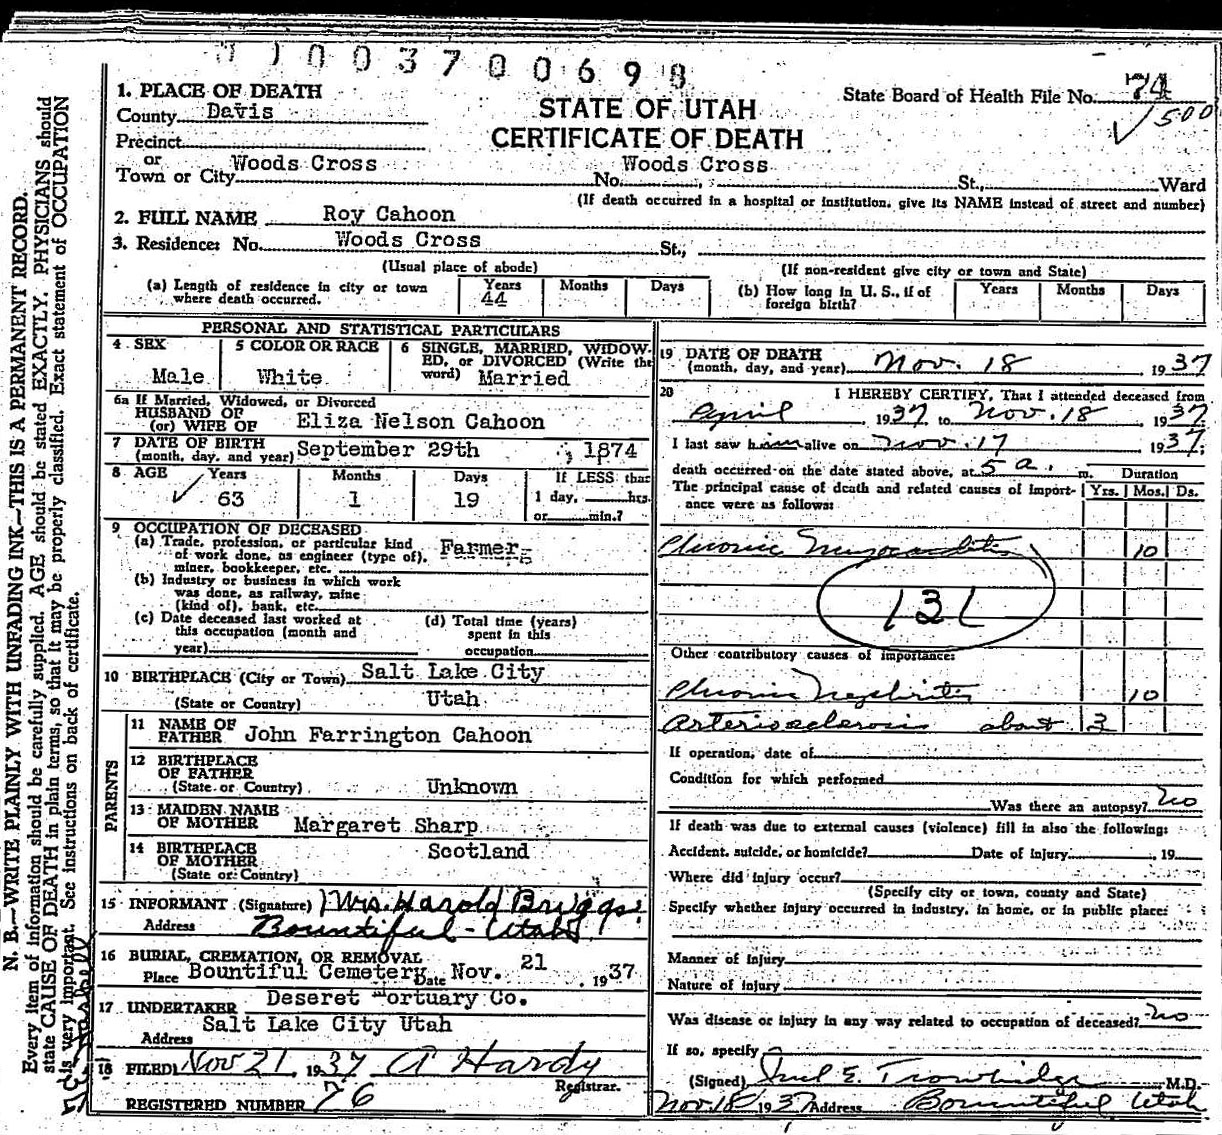 003700698
1. PLACE OF DEATH
County Davis
Precinct
or
Town or City Woods Cross
STATE OF UTAH
CERTIFICATE OF DEATH
State Board of Health File No. 74
500
Woods Cross
No. , St., Ward
(If death occurred in a hospital or institution, give its NAME instead of street and number)
2. FULL NAME Roy Cahoon
3. Residence: No. Woods Cross St.,
(Usual place of abode)
(If non-resident give city or town and State)
(a) Length of residence in city or town
where death occurred.
Years Months Days
44
(b) How long in U. S., if of
foreign birth?
Years Months Days
PERSONAL AND STATISTICAL PARTICULARS
4 SEX
Male
5 COLOR OR RACE
White
6 SINGLE, MARRIED, WIDOW-
ED, or DIVORCED (Write the
word) Married
6a If Married, Widowed, or Divorced
HUSBAND OF
(or) WIFE OF Eliza Nelson Cahoon
7 DATE OF BIRTH
(month, day, and year) September 29th , 1874
8 AGE Years Months Days If LESS than
63 1 19 1 day, hrs.
or min.?
9 OCCUPATION OF DECEASED
(a) Trade, profession, or particular kind
of work done, as engineer (type of), Farmer
miner, bookkeeper, etc.
(b) Industry or business in which work
was done, as railway, mine
(kind of), bank, etc.
(c) Date deceased last worked at
this occupation (month and
year)
(d) Total time (years)
spent in this
occupation
10 BIRTHPLACE (City or Town) Salt Lake City
(State or Country) Utah
PARENTS
11 NAME OF
FATHER John Farrington Cahoon
12 BIRTHPLACE
OF FATHER
(State or Country) Unknown
13 MAIDEN NAME
OF MOTHER Margaret Sharp
14 BIRTHPLACE Scotland
OF MOTHER
(State or Country)
15 INFORMANT (Signature) Mrs. Harold Briggs
Address Bountiful - Utah
16 BURIAL, CREMATION, OR REMOVAL
Place Bountiful Cemetery Date Nov. 21 , 1937
17 UNDERTAKER Deseret Mortuary Co.
Salt Lake City Utah
Address
18 FILED Nov 21, 1937 A Hardy
Registrar.
REGISTERED NUMBER 76
19 DATE OF DEATH
(month, day, and year) Nov. 18 , 1937
20 I HEREBY CERTIFY, That I attended deceased from
April , 1937, to Nov. 18 , 1937;
I last saw him alive on Nov. 17 1937;
death occurred on the date stated above, at 5 a. m. Duration
The principal cause of death and related causes of import-
ance were as follows:
Yrs. Mos. Ds.
Chronic Myocarditis 10
131
Other contributory causes of importance:
Chronic Nephritis 10
Arteriosclerosis about 3
If operation, date of
Condition for which performed
Was there an autopsy? No
If death was due to external causes (violence) fill in also the following:
Accident, suicide, or homicide? Date of injury , 19
Where did injury occur?
(Specify city or town, county and State)
Specify whether injury occurred in industry, in home, or in public place:
Manner of Injury
Nature of injury
Was disease or injury in any way related to occupation of deceased? No
If so, specify
(Signed) E. Trowbridge M.D.
Nov. 18 1937 Address Bountiful Utah
N. B.—WRITE PLAINLY WITH UNFADING INK—THIS IS A PERMANENT RECORD.
Every item of information should be carefully supplied. AGE should be stated EXACTLY. PHYSICIANS should
state CAUSE OF DEATH in plain terms, so that it may be properly classified. Exact statement of OCCUPATION
is very important. See instructions on back of certificate.